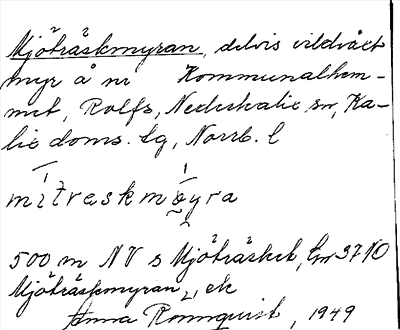 Mjöträskmyran, delvis vildväxt
myr å nr Kommunalhem-
met, Rolfs, Nederkalix sn, Ka-
lix doms. tg, Norrb. l
mitreskmyra
500 m NV s Mjöträsket, Gm 37 NO
Mjöträskmyran, ek
Anna Rönnquist, 1949